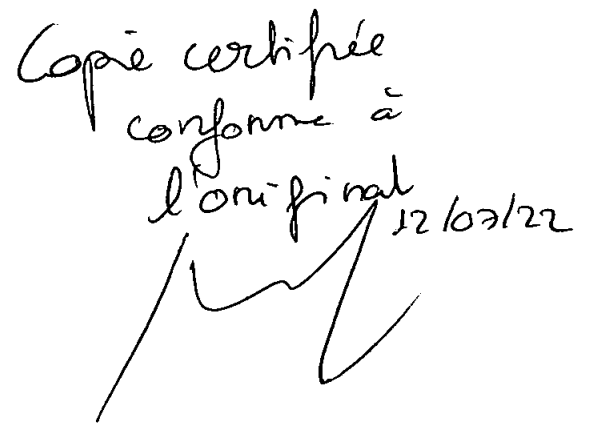 Copie certifiée
conforme à
l'original
12/07/22